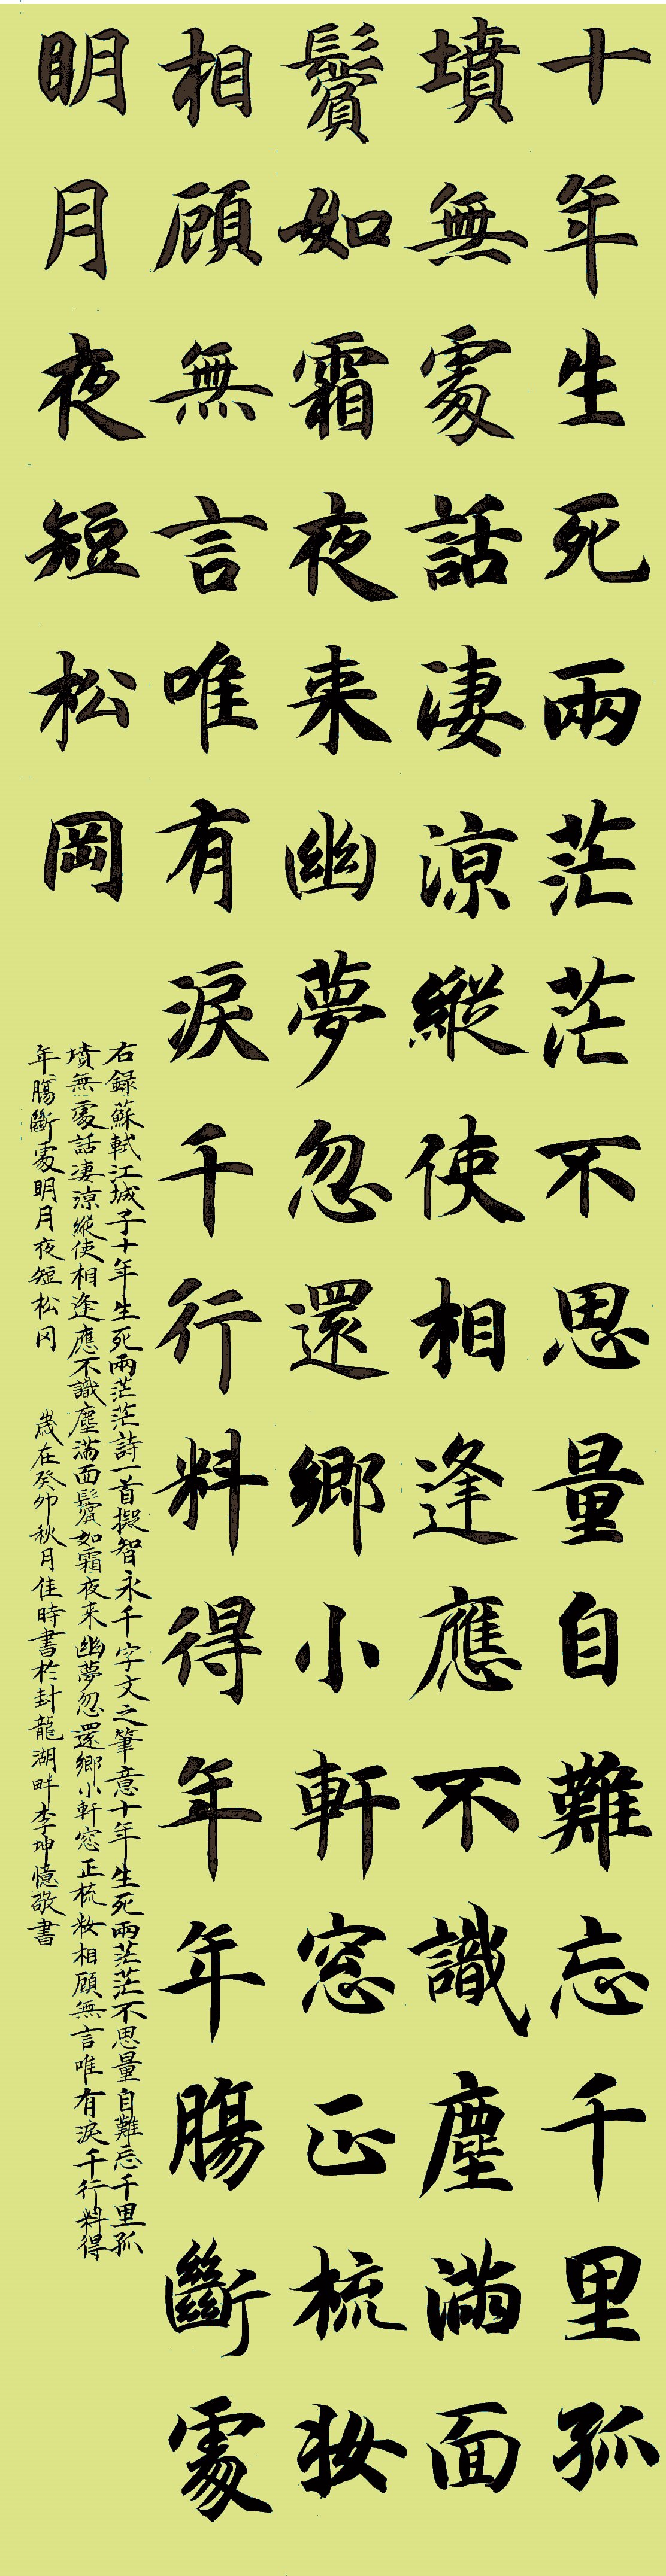 十年生死兩茫茫不思量自難忘千里孤
墳無處話淒涼縱使相逢應不識塵滿面
鬢如霜夜来幽夢忽還鄉小軒窓正梳妝
相顧無言唯有淚千行料得年年腸斷處
明月夜短松岡
右録蘇軾江城子十年生死兩茫茫詩一首擬智永千字文之筆意十年生死兩茫茫不思量自難忘千里孤
墳無處話淒涼縱使相逢應不識塵滿面鬢如霜夜来幽夢忽還鄉小軒窓正梳妝相顧無言唯有淚千行料得
年腸斷處明月夜短松冈 歲在癸卯秋月佳時書於封龍湖畔李坤憶敬書